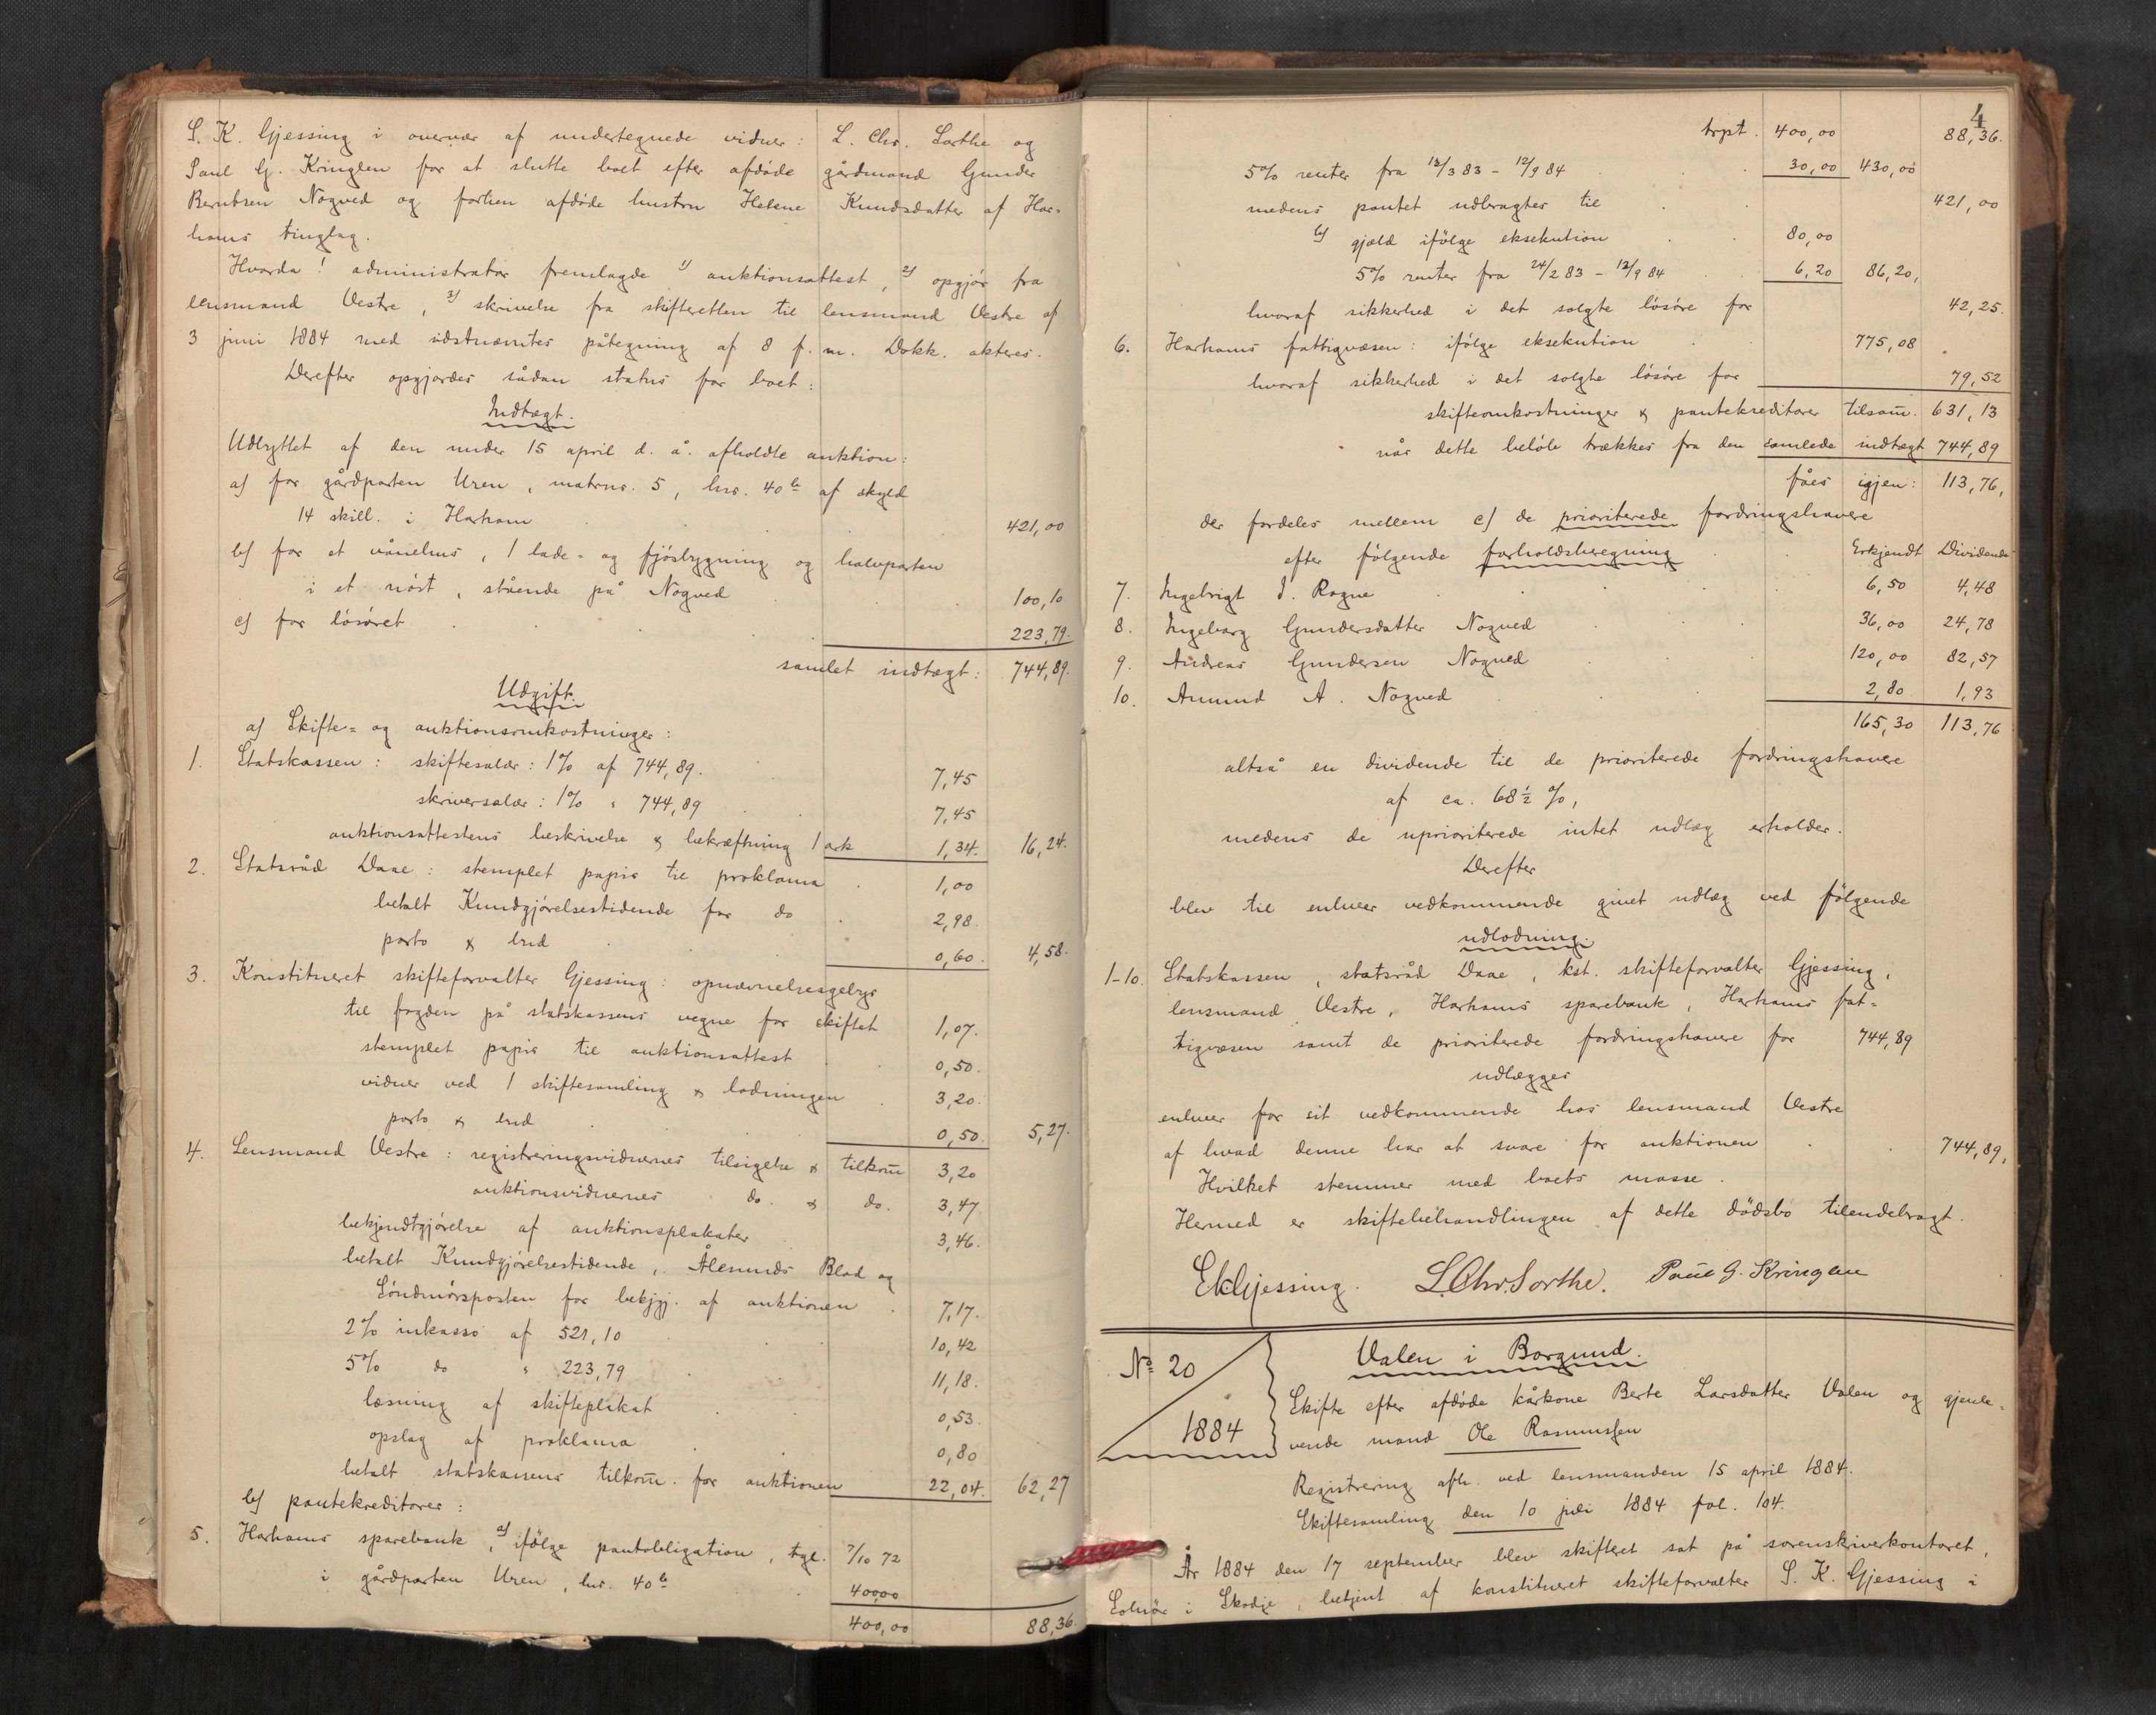 S. K. Gjessing i overvær af undertegnede vidner: L. Chr. Sorthe og
Paul G. Kringlen for at slutte boet efter afdøde gårdmand Gunder
Berntsen Nogved og forhen afdøde hustru Helene Knudsdatter af Har-
hams tinglag.
Hvorda! administrator fremlagde 1) auktionsattest, 2) opgjør fra
lensmand Vestre, 3) skrivelse fra skifteretten til lensmand Vestre af
3 juni 1884 med sidstnævntes påtegning af 8 f. m. Dokk. akteres.
Derefter opgjordes sådan status for boet:
Indtægt.
Udbyttet af den under 15 april d. å. afholdte auktion:
a) for gårdparten Uren, matrnr. 5, lnr. 40b af skyld
14 skill. i Harham 421,00
b) for et vånehus, 1 lade- og fjøsbygning og halvparten
i et nøst, stående på Nogved 100,10
c) for løsøret 223,79.
samlet indtægt: 744,89.
Udgift.
a) Skifte- og auktionsomkostninger:
1. Statskassen: skiftesalær: 1% af 744,89. 7,45
skriversalær: 1% " 744,89 7,45
auktionsattestens beskrivelse & bekræftning 1 ark 1,34. 16,24.
2. Statsråd Daae: stemplet papir til proklama 1,00
betalt Kundgjørelsestidende for do 2,98.
porto & bud 0,60. 4,58.
3. Konstitueret skifteforvalter Gjessing: opnævnelsesgebyr
til fogden på statskassens vegne for skiftet 1,07.
stemplet papir til auktionsattest 0,50.
vidner ved 1 skiftesamling & lodningen 3,20.
porto & bud 0,50. 5,27.
4. Lensmand Vestre: registreringsvidnernes tilsigelse & tilkom 3,20
auktionsvidnernes do. & do. 3,47
bekjendtgjørelse af auktionsplakater 3,46.
betalt Kundgjørelsestidende, Ålesunds Blad og
Søndmørsposten for bekjgj. af auktionen 7,17.
2% inkasso af 521,10 10,42
5% do " 223,79 11,18.
læsning af skifteplakat 0,53.
opslag af proklama 0,80
betalt statskassens tilkom. for auktionen 22,04. 62,27
b) pantekreditorer:
5. Harhams sparebank, a) ifølge pantobligation, tgl. 7/10 72
i gårdparten Uren, lnr. 40b 400,00
400,00 88,36.
4
trpt. 400,00 88,36.
5% renter fra 12/3 83 - 12/9 84 30,00 430,00
medens pantet udbragtes til 421,00
b) gjæld ifølge eksekution 80,00
5% renter fra 24/2 83 - 12/9 84 6,20 86,20,
hvoraf sikkerhed i det solgte løsøre for 42,25.
6. Harhams fattigvæsen: ifølge eksekution 775,08
hvoraf sikkerhed i det solgte løsøre for 79,52
skifteomkostninger & pantekreditorer tilsam. 631,13
når dette beløb trækkes fra den samlede indtægt 744,89
fåes igjen: 113,76,
der fordeles mellem c) de prioriterede fordringshavere
efter følgende forholdsberegning Erkjendt Dividende
7. Ingebrigt I. Rogne 6,50 4,48
8. Ingeborg Gundersdatter Nogved 36,00 24,78
9. Andreas Gundersen Nogved 120,00 82,57
10. Amund A. Nogved 2,80 1,93
165,30 113,76
altså en dividende til de prioriterede fordringshavere
af ca. 68½ %,
medens de uprioriterede intet udlæg erholder.
Derefter
blev til enhver vedkommende givet udlæg ved følgende
udlodning.
1-10. Statskassen, statsråd Daae, kst. skifteforvalter Gjessing,
lensmand Vestre, Harhams sparebank, Harhams fat-
tigvæsen samt de prioriterede fordringshavere for 744,89
udlægges
enhver for sit vedkommende hos lensmand Vestre
af hvad denne har at svare for auktionen 744,89,
Hvilket stemmer med boets masse.
Hermed er skiftebehandlingen af dette dødsbo tilendebragt.
SKGjessing. L.Chr.Sorthe. Paul G. Kringlen
No 20
1884
Valen i Borgund.
Skifte efter afdøde kårkone Berte Larsdatter Valen og gjenle-
vende mand Ole Rasmussen
Registrering afh. ved lensmanden 15 april 1884.
Skiftesamling den 10 juli 1884 fol. 104.
År 1884 den 17 september blev skifteret sat på sorenskriverkontoret,
Solnør i Skodje, betjent af konstitueret skifteforvalter S. K. Gjessing i